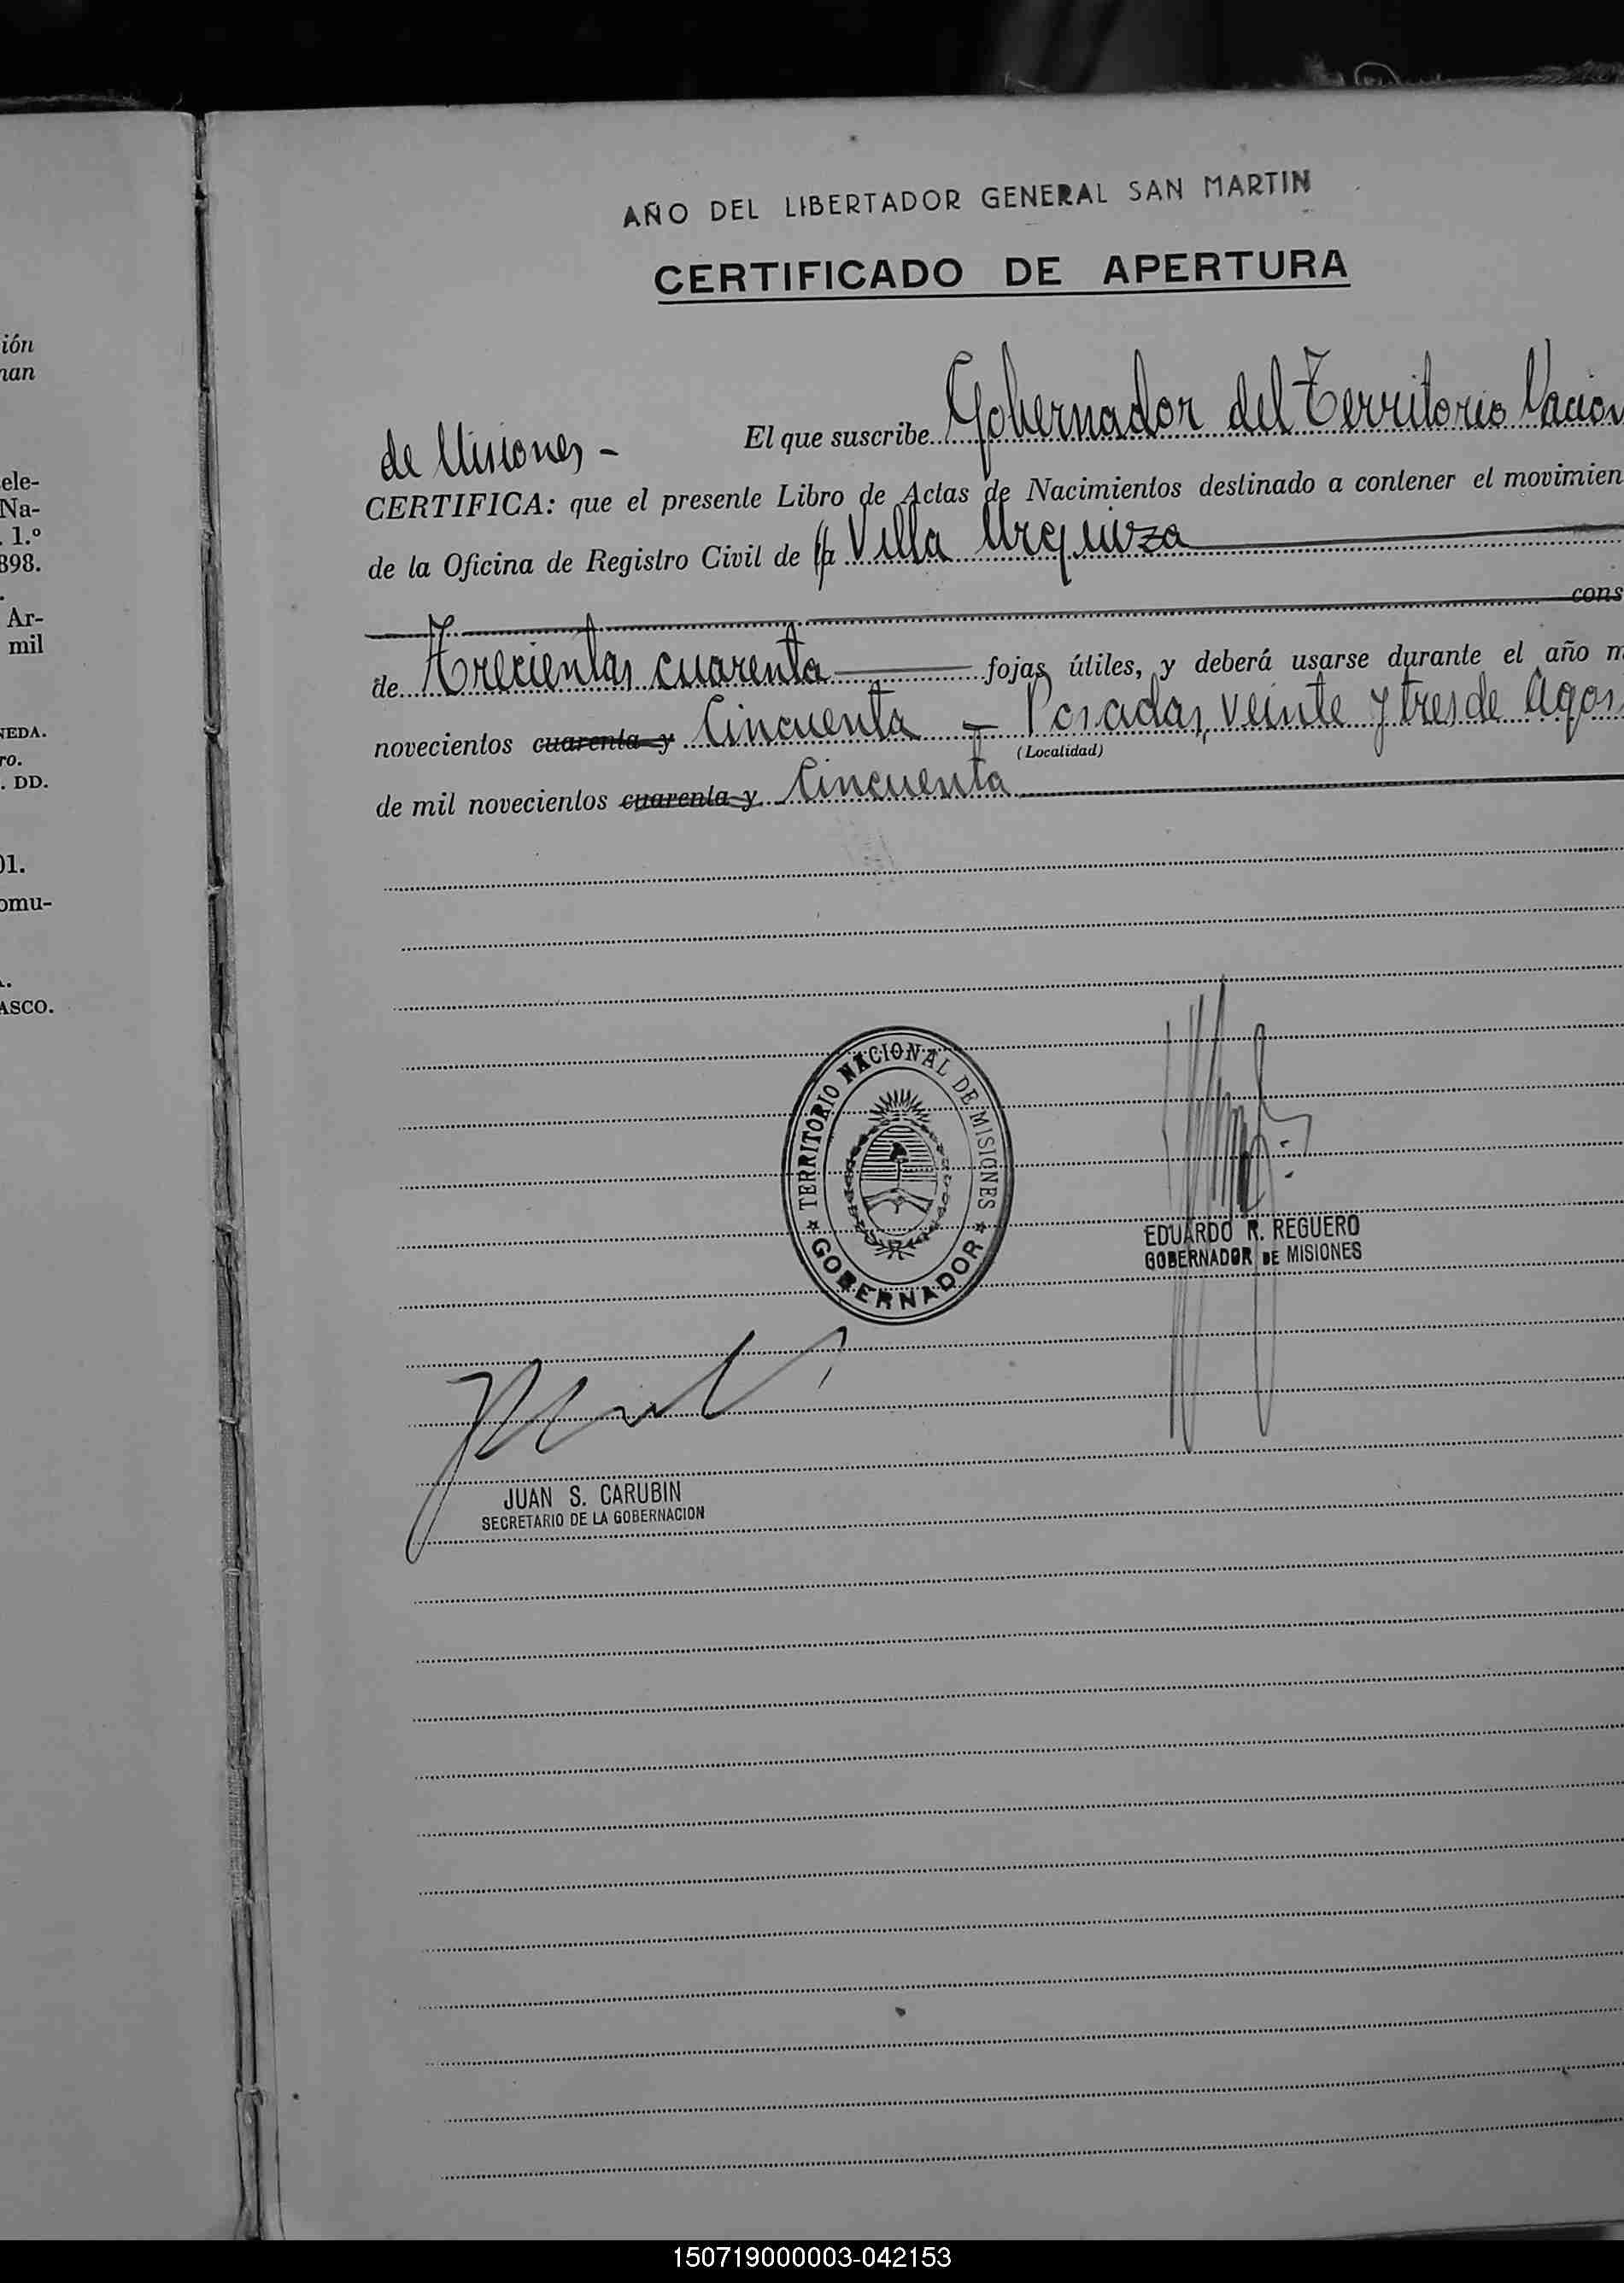 ión
nan
ele-
Na-
. 1.º
898.
.
Ar-
mil
NEDA.
ro.
. DD.
01.
omu-
.
ASCO.
AÑO DEL LIBERTADOR GENERAL SAN MARTIN
CERTIFICADO DE APERTURA
El que suscribe Gobernador del Territorio Nacion
de Misiones -
CERTIFICA: que el presente Libro de Actas de Nacimientos destinado a contener el movimien
de la Oficina de Registro Civil de Villa Urquiza
cons
de Trecientas cuarenta fojas útiles, y deberá usarse durante el año m
novecientos cuarenta y Cincuenta - Posadas, veinte y tres de Agos
(Localidad)
de mil novecientos cuarenta y Cincuenta
TERRITORIO NACIONAL DE MISIONES
GOBERNADOR
EDUARDO R. REGUERO
GOBERNADOR DE MISIONES
JUAN S. CARUBIN
SECRETARIO DE LA GOBERNACION
150719000003-042153